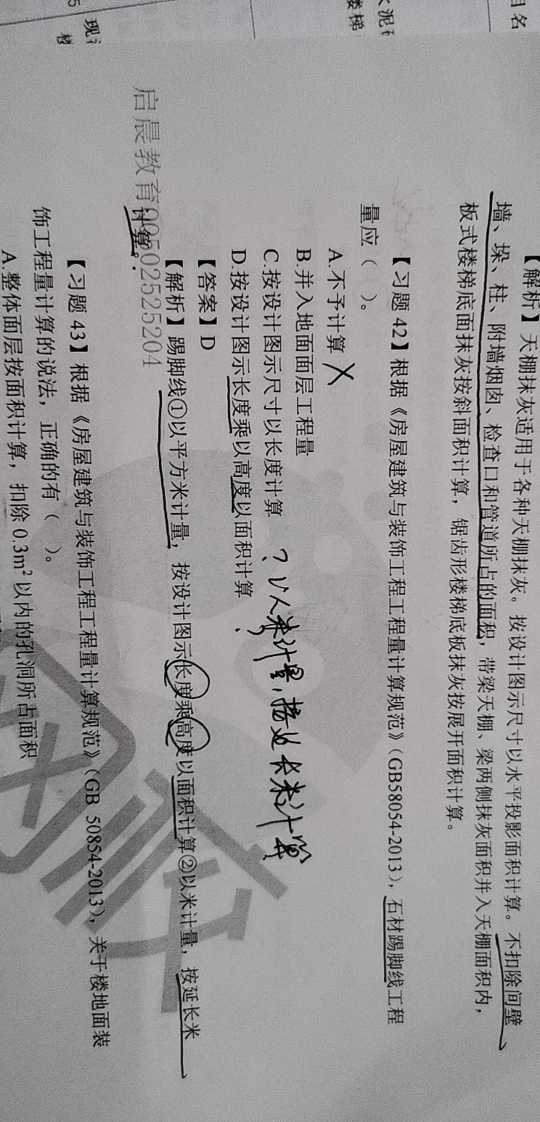 目名
水泥
楼梯
现
5
楼
【解析】天棚抹灰适用于各种天棚抹灰。按设计图示尺寸以水平投影面积计算。不扣除间壁
墙、垛、柱、附墙烟囱、检查口和管道所占的面积，带梁天棚、梁两侧抹灰面积并入天棚面积内，
板式楼梯底面抹灰按斜面积计算，锯齿形楼梯底板抹灰按展开面积计算。
【习题 42】根据《房屋建筑与装饰工程工程量计算规范》（GB58054-2013），石材踢脚线工程
量应（ ）。
A.不予计算 X
B.并入地面面层工程量
C.按设计图示尺寸以长度计算 ? 以米计量，按延长米计算
D.按设计图示长度乘以高度以面积计算
【答案】D
【解析】踢脚线①以平方米计量，按设计图示长度乘高度以面积计算②以米计量，按延长米
计算。
启晨教育
02525204
【习题 43】根据《房屋建筑与装饰工程工程量计算规范》（GB 50854-2013），关于楼地面装
饰工程量计算的说法，正确的有（ ）。
A.整体面层按面积计算，扣除 0.3m² 以内的孔洞所占面积